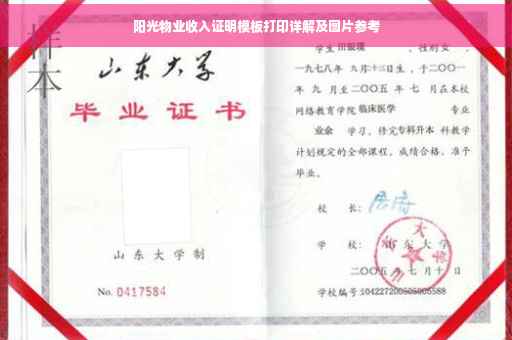 阳光物业收入证明模板打印详解及图片参考
样本
山东大学
毕业证书
山东大学制
No. 0417584
学生 性别女
一九七八年 九月十三日生,于二〇〇一
年 九 月至二〇〇五 年 七 月在本校
网络教育学院 临床医学 专业
业余 学习,修完专科升本 科教学
计划规定的全部课程,成绩合格,准予
毕业。
校 长:
学 校:山东大学
二〇〇五年七月十日
学校编号:104227200505005588